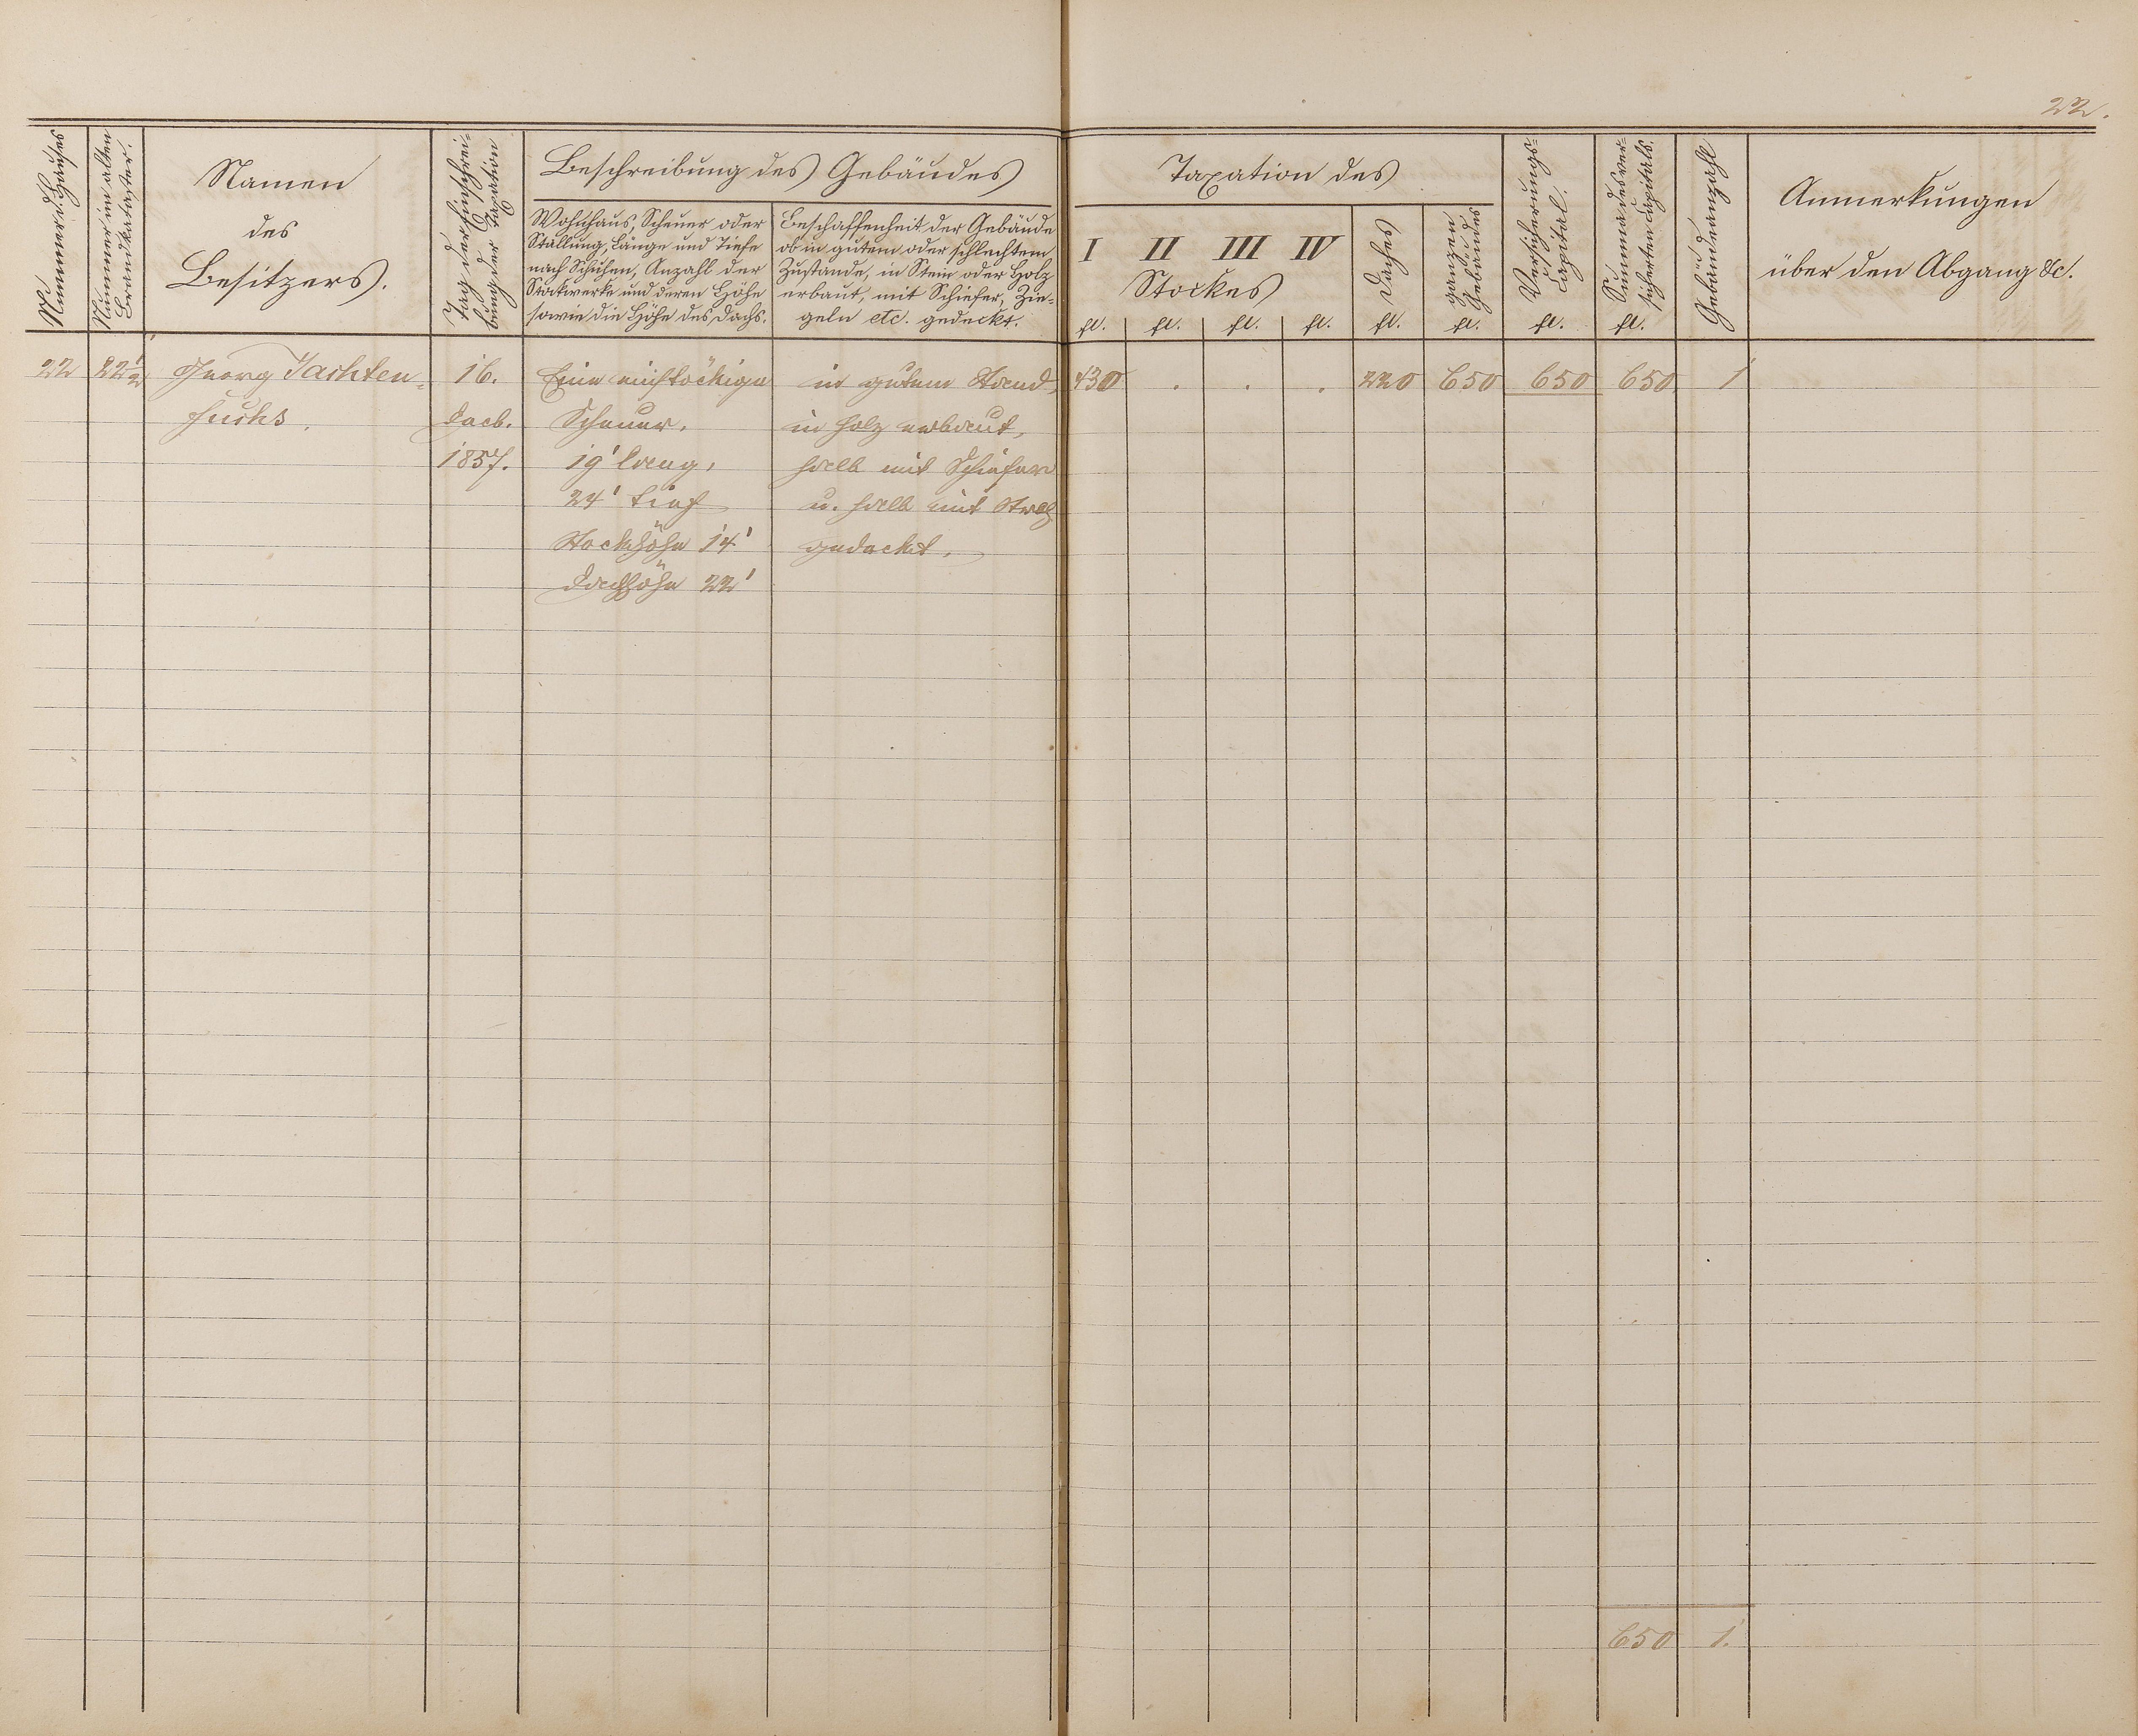 22.
№ Nummer d. Hauses
Nummer im alten
Brandkataster.
Namen
des
Besitzers.
Tag der Einschrei-
bung der Taxation
Beschreibung des Gebäudes
Wohnhaus, Scheuer oder
Stallung, Länge und Tiefe
nach Schuhen, Anzahl der
Stockwerke und deren Höhe
sowie die Höhe des Dachs.
Beschaffenheit der Gebäude
ob in gutem oder schlechtem
Zustande, in Stein oder Holz
erbaut, mit Schiefer, Zie-
geln etc. gedeckt.
Taxation des
I II III IV
Stockes
Daches
ganzen
Gebäudes
Versicherungs-
Capital.
Summa des ver-
sicherten Capitals.
Gebäudeanzahl
Anmerkungen
über den Abgang &c.
fl. fl. fl. fl. fl. fl. fl. fl.
22 22½ Georg Jachten- 16. Eine einstöckige in gutem Stand, 430 . . . 220 650 650 650 1
fuchs. Decb. Scheuer. in Holz erbaut,
1857. 19' lang, halb mit Schiefer
24' tief u. halb mit Stroh
Stockhöhe 14' gedeckt.
Dachhöhe 22'
650 1.